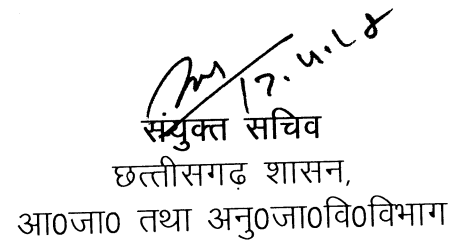 17.4.18
संयुक्त सचिव
छत्तीसगढ़ शासन,
आ0जा0 तथा अनु0जा0वि0विभाग